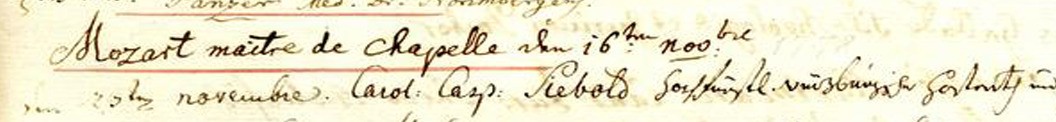 Panzer Med. Dr. Norimbergens.
Mozart maitre de Chapelle den 16ten novbre
den 23ten novembre. Carol: Casp: Siebold Hochfürstl. würzburgischer Hofrath und